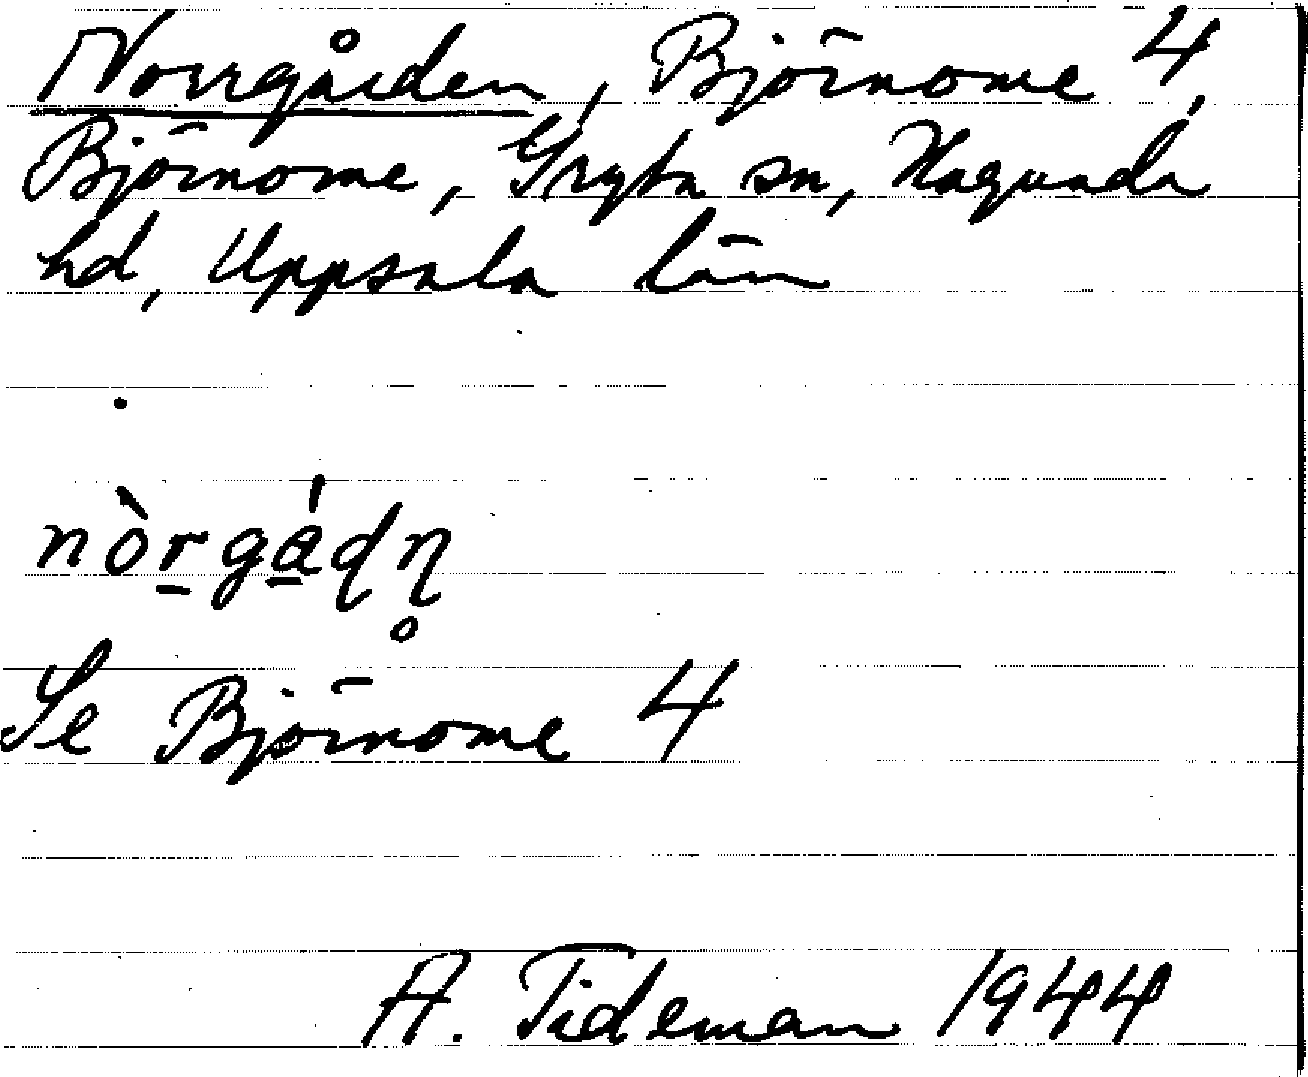 Norrgården, Björnome 4,
Björnome, Gryta sn, Hagunda
hd, Uppsala län
nòr̲gá̲ɖɳ̥
Se Björnome 4
A. Tideman 1944